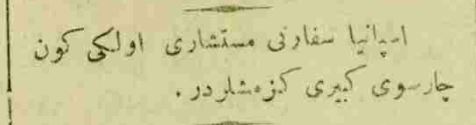 اسپانیا سفارتی مستشاری اولکی کون
چارسوی کبیری کزمشلردر .